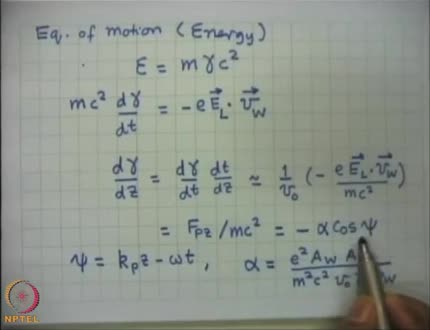 Eq. of motion (Energy)
ε = mγc²
mc² dγ/dt = -e E⃗_L · v⃗_W
dγ/dz = dγ/dt dt/dz ≃ 1/v₀ (- e E⃗_L · v⃗_W / mc²)
= F_pz / mc² = - α cos ψ
ψ = k_p z - ωt, α = e² A_W A / m² c² v₀ w
NPTEL